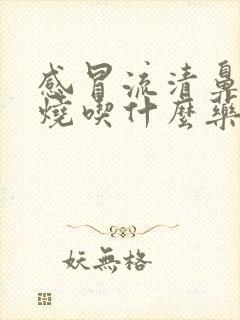 感冒流清鼻
燒喫什麼藥
妖無格